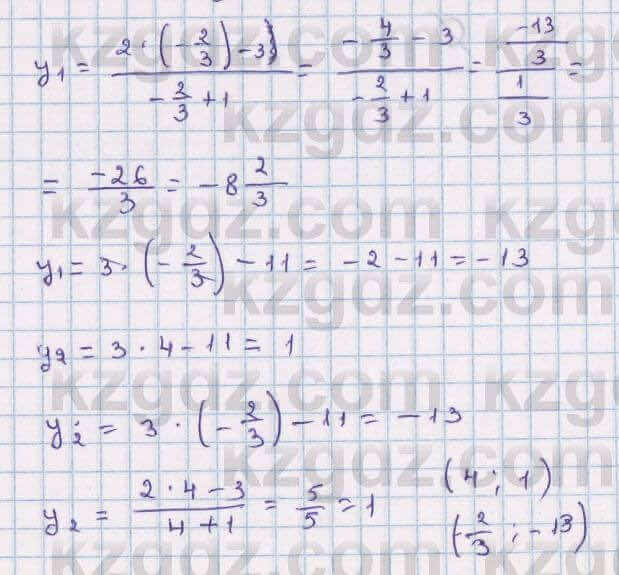 y₁ = (2 · (-2/3) - 3) / (-2/3 + 1) = (-4/3 - 3) / (-2/3 + 1) = (-13/3) / (1/3) =
= -26/3 = -8 2/3
y₁ = 3 · (-2/3) - 11 = -2 - 11 = -13
y₂ = 3 · 4 - 11 = 1
y₂ = 3 · (-2/3) - 11 = -13
y₂ = (2 · 4 - 3) / (4 + 1) = 5/5 = 1
(4 ; 1)
(-2/3 ; -13)
kzgdz.com